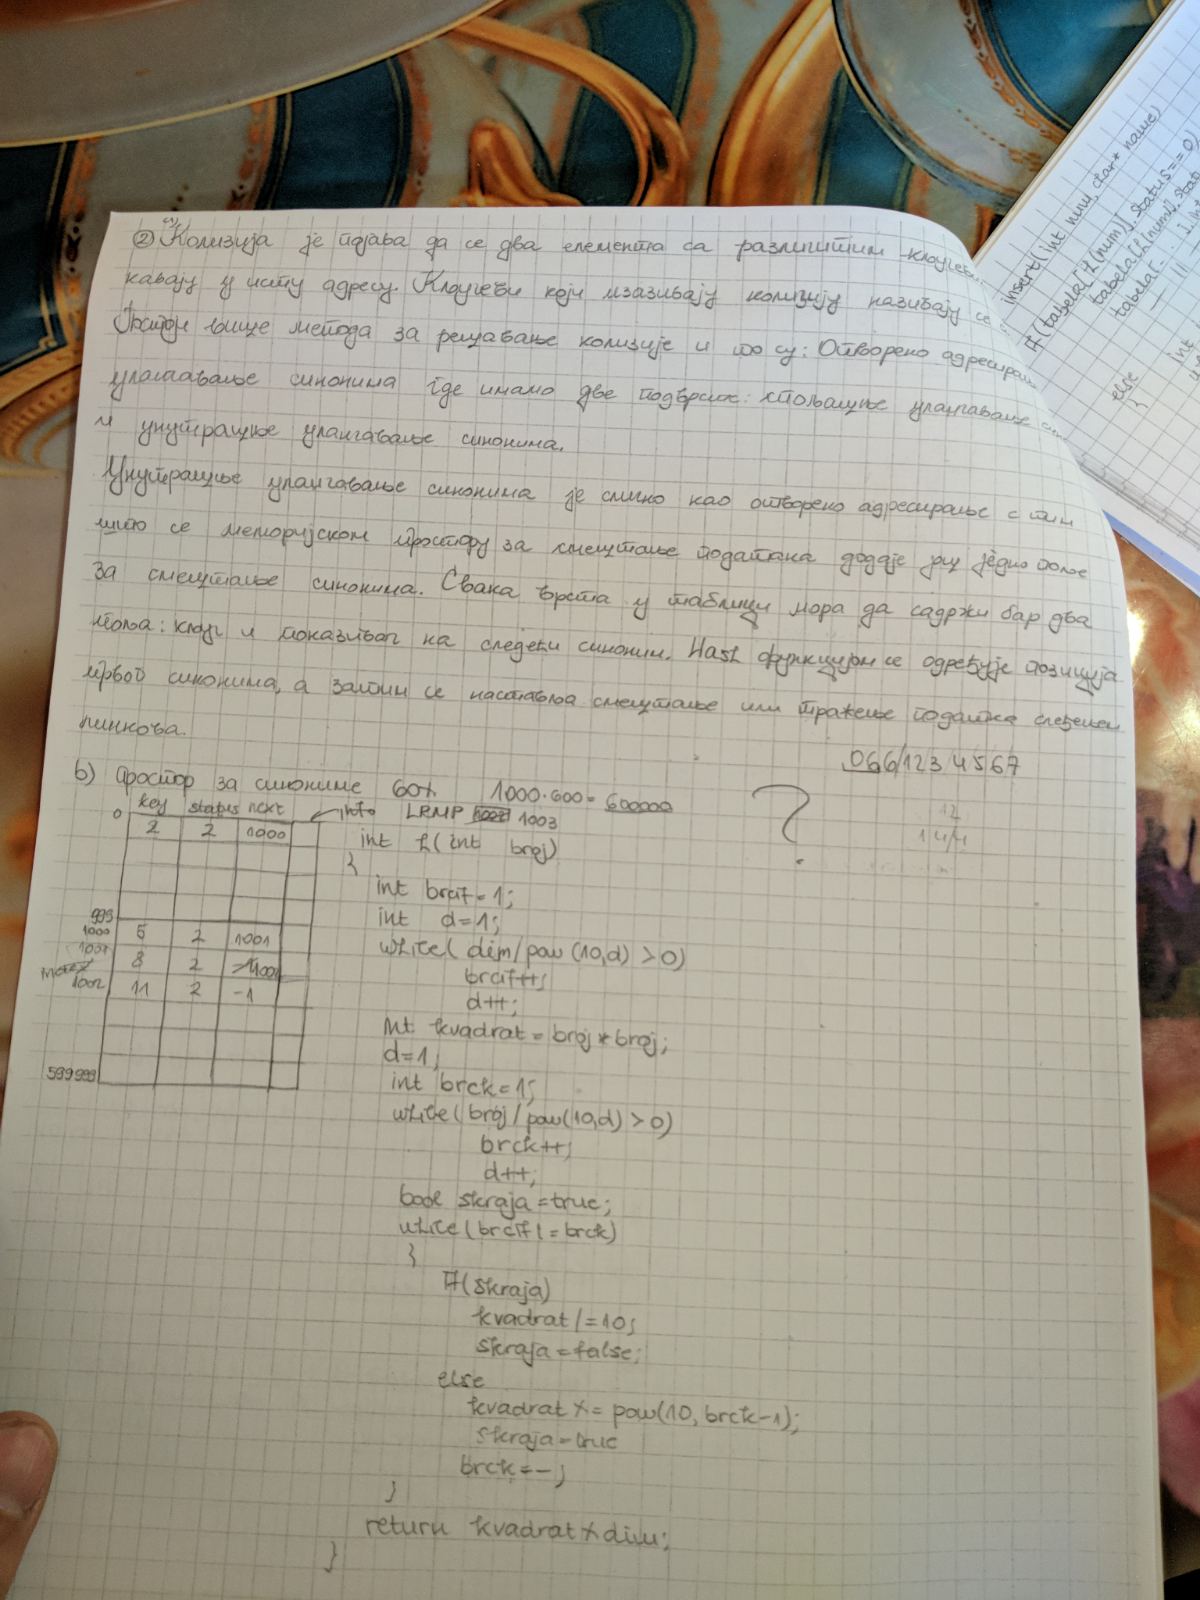 ② а) Колизија је појава да се два елемента са различитим кључеви
у исту адресу. Кључеви који изазивају колизију називају се
Постоји више метода за решавање колизије и то су: Отворено адресирање
улачавање синонима где имамо две подврсте: спољашње уланчавање
и унутрашње уланчавање синонима.
Унутрашње уланчавање синонима је слично као отворено адресирање с тим
што се меморијском простору за смештање података додаје још једно поље
за смештање синонима. Свака врста у таблици мора да садржи бар два
поља: кључ и показивач на следећи синоним. Hash функцијом се одређује позиција
првог синонима, а затим се наставља смештање или тражење податка слеђењем
линкова.
066/123 4567
b) Простор за синониме 60% 1000·600= 600000
?
12
144
key status next
info LRMP 1003
0 2 2 1000
999
1000 5 2 1001
1001 8 2 1002
1002 11 2 -1
599999
int h(int broj)
{
int brcif=1;
int d=1;
while( dim/pow(10,d) >0)
brcif++;
d++;
int kvadrat = broj * broj;
d=1;
int brck=1;
while(broj/pow(10,d) >0)
brck++;
d++;
bool skraja=true;
while(brcif!=brck)
{
if(skraja)
kvadrat/=10;
skraja=false;
else
kvadrat %= pow(10, brck-1);
skraja=true
brck=-;
}
return kvadrat % dim;
}
insert(int num, char* name)
if(tabela[h(num)].status==0)
tabela[h(num)].stat
tabela[
else
{
int